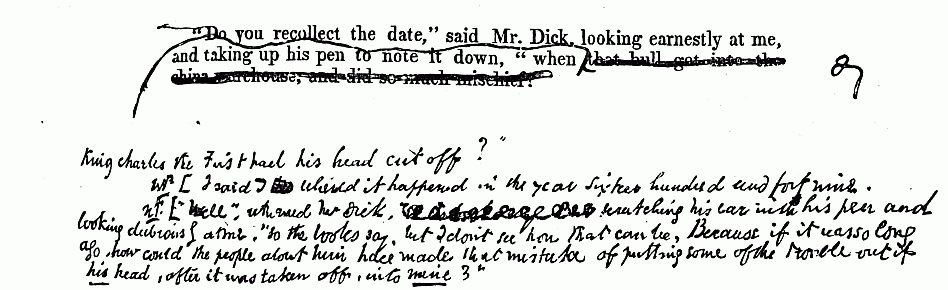 "Do you recollect the date," said Mr. Dick, looking earnestly at me,
and taking up his pen to note it down, "when that bull got into the
china warehouse, and did so much mischief?"
King Charles the First had his head cut off?"
[I said I believed it happened in the year sixteen hundred and forty nine.
["Well", returned Mr Dick, scratching his ear with his pen and
looking dubiously at me. "So the books say, but I don't see how that can be. Because if it was so long
ago, how could the people about him have made that mistake of putting some of the trouble out of
his head, after it was taken off, into mine?"